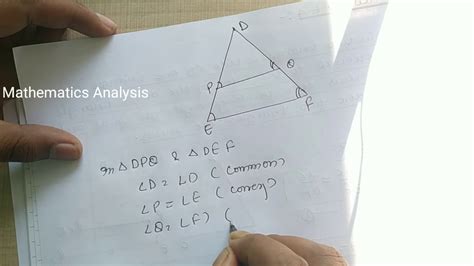 D
Q
P
Mathematics Analysis
F
E
In △DPQ & △DEF
∠D = ∠D (common)
∠P = ∠E (corres)
∠Q = ∠F) (